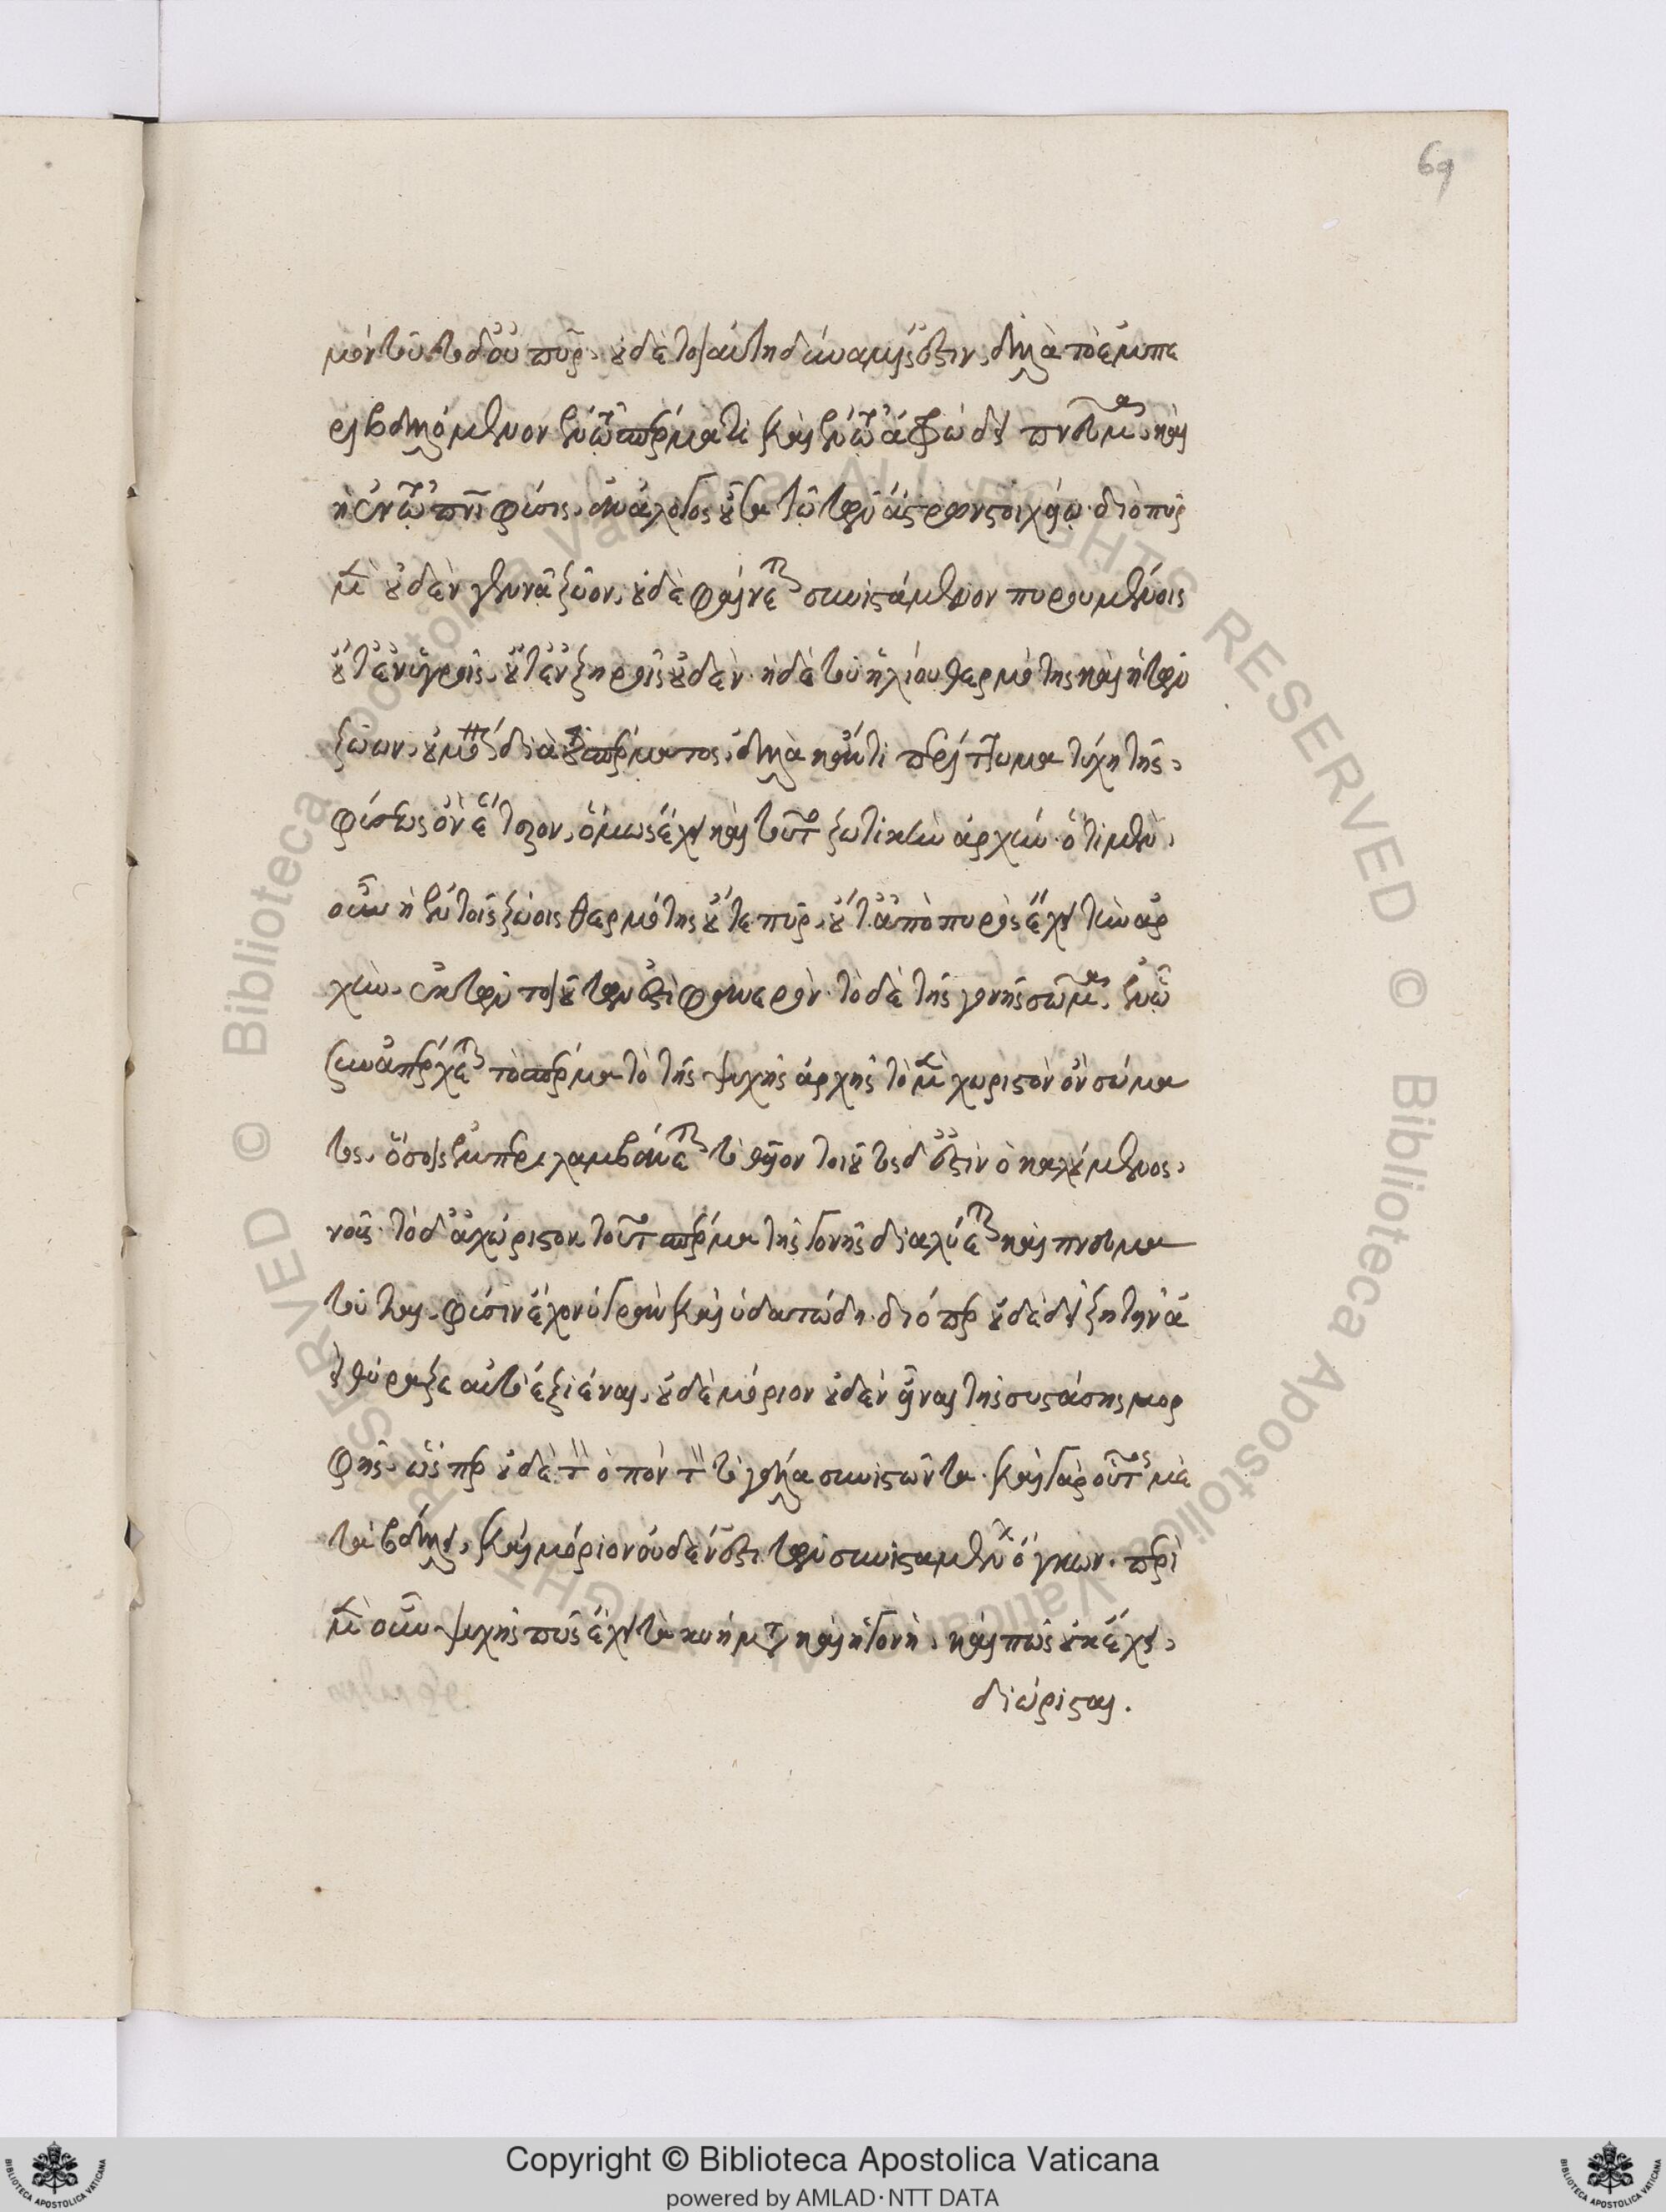 μόν τοῦτο δ' οὐ πῦρ, οὐδὲ τοιαύτη δύναμίς ἐστιν, ἀλλὰ τὸ ἐμπε
ριβαλλόμενον ἐν τῷ σπέρματι καὶ ἐν τῷ ἀφρώδει πνεῦμα, καὶ
ἡ ἐν τῷ πνι φύσις, ἀνάλογος οὖσα τῷ τῶν ἄστρων στοιχείῳ· διὸ πῦρ
μὲν οὐδὲν γεννᾷ ζῶον, οὐδὲ φαίνεται συνιστάμενον πυρουμένοις
οὔτ' ἐν ὑγροῖς, οὔτ' ἐν ξηροῖς οὐδέν· ἡ δὲ τοῦ ἡλίου θερμότης καὶ ἡ τῶν
ζώων, οὐ μόνον διὰ τοῦ σπέρματος, ἀλλὰ κἄν τι περίττωμα τύχῃ τῆς,
φύσεως ὂν ἕτερον, ὅμως ἔχει καὶ τοῦτο ζωτικὴν ἀρχήν· ὅτι μὲν,
οὖν ἡ ἐν τοῖς ζώοις θερμότης οὔτε πῦρ, οὔτ' ἀπὸ πυρὸς ἔχει τὴν ἀρ
χὴν, ἐκ τῶν τοιούτων ἐστὶ φανερόν· τὸ δὲ τῆς γονῆς σῶμα, ἐν ᾧ
συναπέρχεται τὸ σπέρμα τὸ τῆς ψυχῆς ἀρχῆς τὸ μὲν χωριστὸν ὂν σώμα
τος, ὅσοις ἐμπεριλαμβάνεται τὸ θεῖον τοιοῦτος δ' ἐστὶν ὁ καλούμενος,
νοῦς· τὸ δ' ἀχώριστον, τοῦτο σπέρμα τῆς γονῆς διαλύεται καὶ πνευμα
τοῦται, φύσιν ἔχον ὑγρὰν καὶ ὑδατώδη· διόπερ οὐδὲ δεῖ ζητεῖν ἀ
εὶ θύραζε αὐτὸ ἐξιέναι, οὐδὲ μόριον οὐδὲν εἶναι τῆς συστάσης μορ
φῆς, ὥσπερ οὐδὲ τὸν ὀπὸν τὸν τὸ γάλα συνιστῶντα· καὶ γὰρ οὗτος με
ταβάλλει, καὶ μόριον οὐδέν ἐστι τῶν συνισταμένων ὄγκων· περὶ
μὲν οὖν ψυχῆς πῶς ἔχει τὰ κυήματα καὶ ἡ γονὴ, καὶ πῶς οὐκ ἔχει,
διώρισται.
69
Copyright © Biblioteca Apostolica Vaticana
powered by AMLAD·NTT DATA